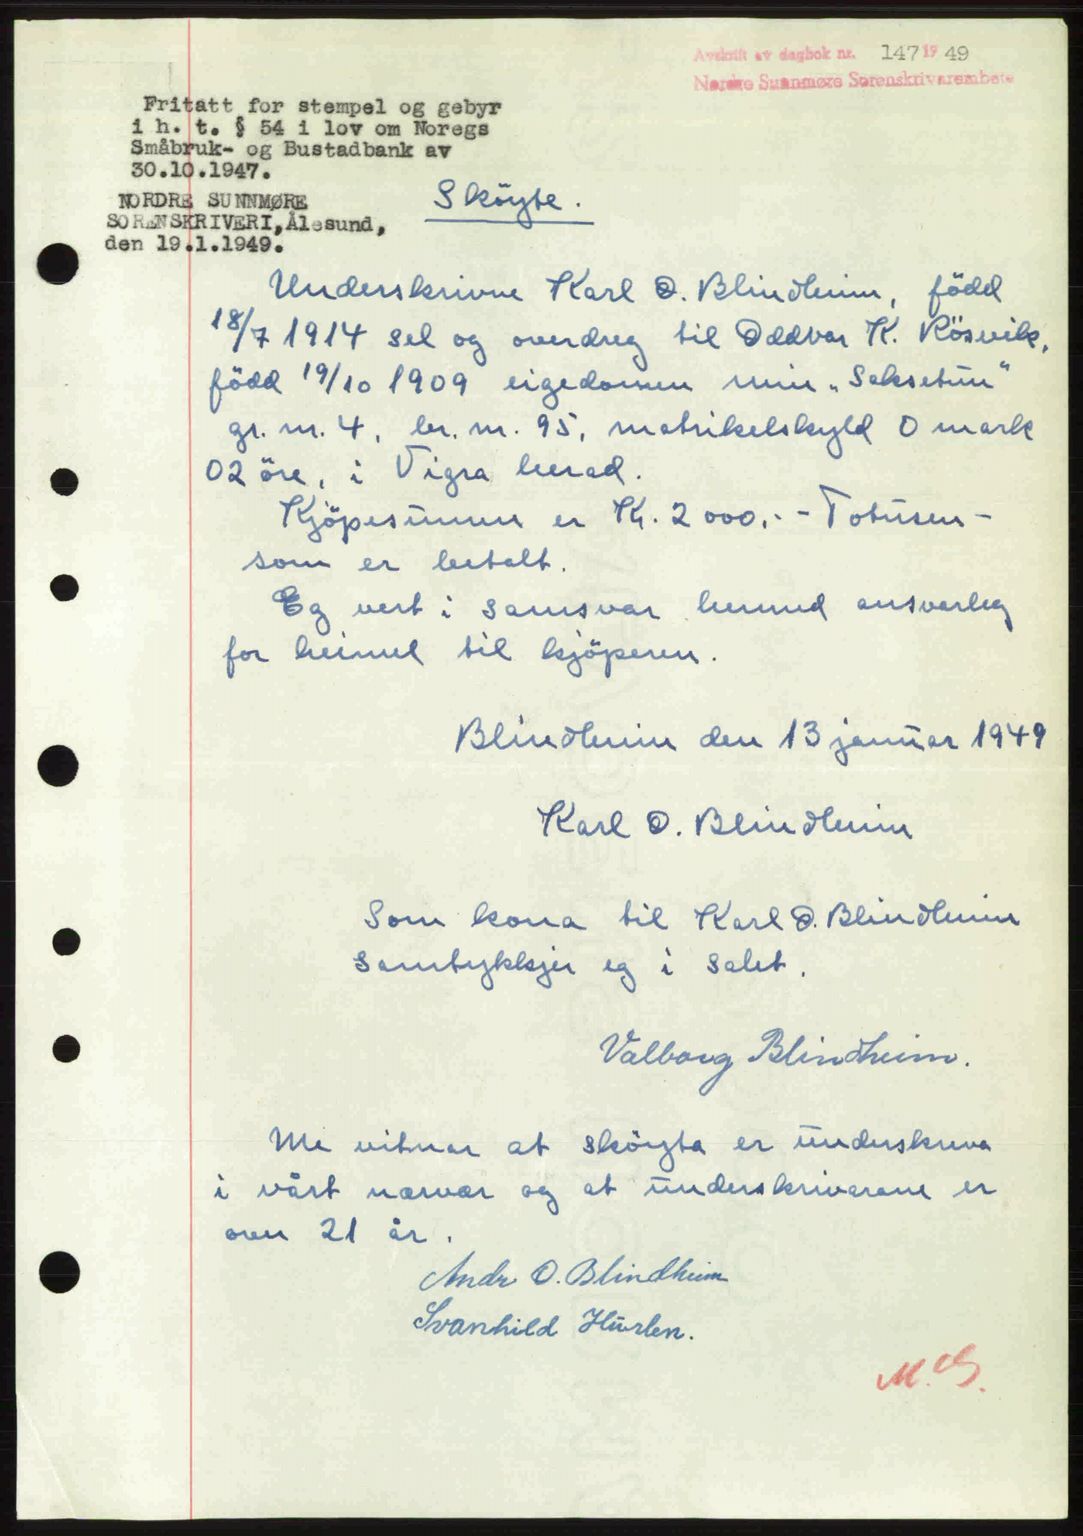 Avskrift av dagbok nr. 147 19 49
Nordre Sunnmøre Sorenskrivarembete
Fritatt for stempel og gebyr
i h. t. § 54 i lov om Noregs
Småbruk- og Bustadbank av
30.10.1947.
NORDRE SUNNMØRE
SORENSKRIVERI, Ålesund,
den 19.1.1949.
Sköyte.
Underskrivne Karl O. Blindheim, född
18/7 1914 sel og overdreg til Oddvar K. Rösvik,
född 19/10 1909 eigedomen min „Saksetun"
gr. nr. 4, br. nr. 95, matrikelskyld 0 mark
02 öre, i Vigra herad.
Kjöpesummen er Kr. 2 000,- - Totusen -
som er betalt.
Eg vert i samsvar hermed ansvarleg
for heimel til kjöperen.
Blindheim den 13 januar 1949
Karl O. Blindheim
Som kona til Karl O. Blindheim
samtykkjer eg i salet.
Valborg Blindheim.
Me vitnar at sköyta er underskreva
i vårt nærvær og at underskrivarane er
over 21 år.
Andr O. Blindheim
Svanhild Hurlen.
M.G.